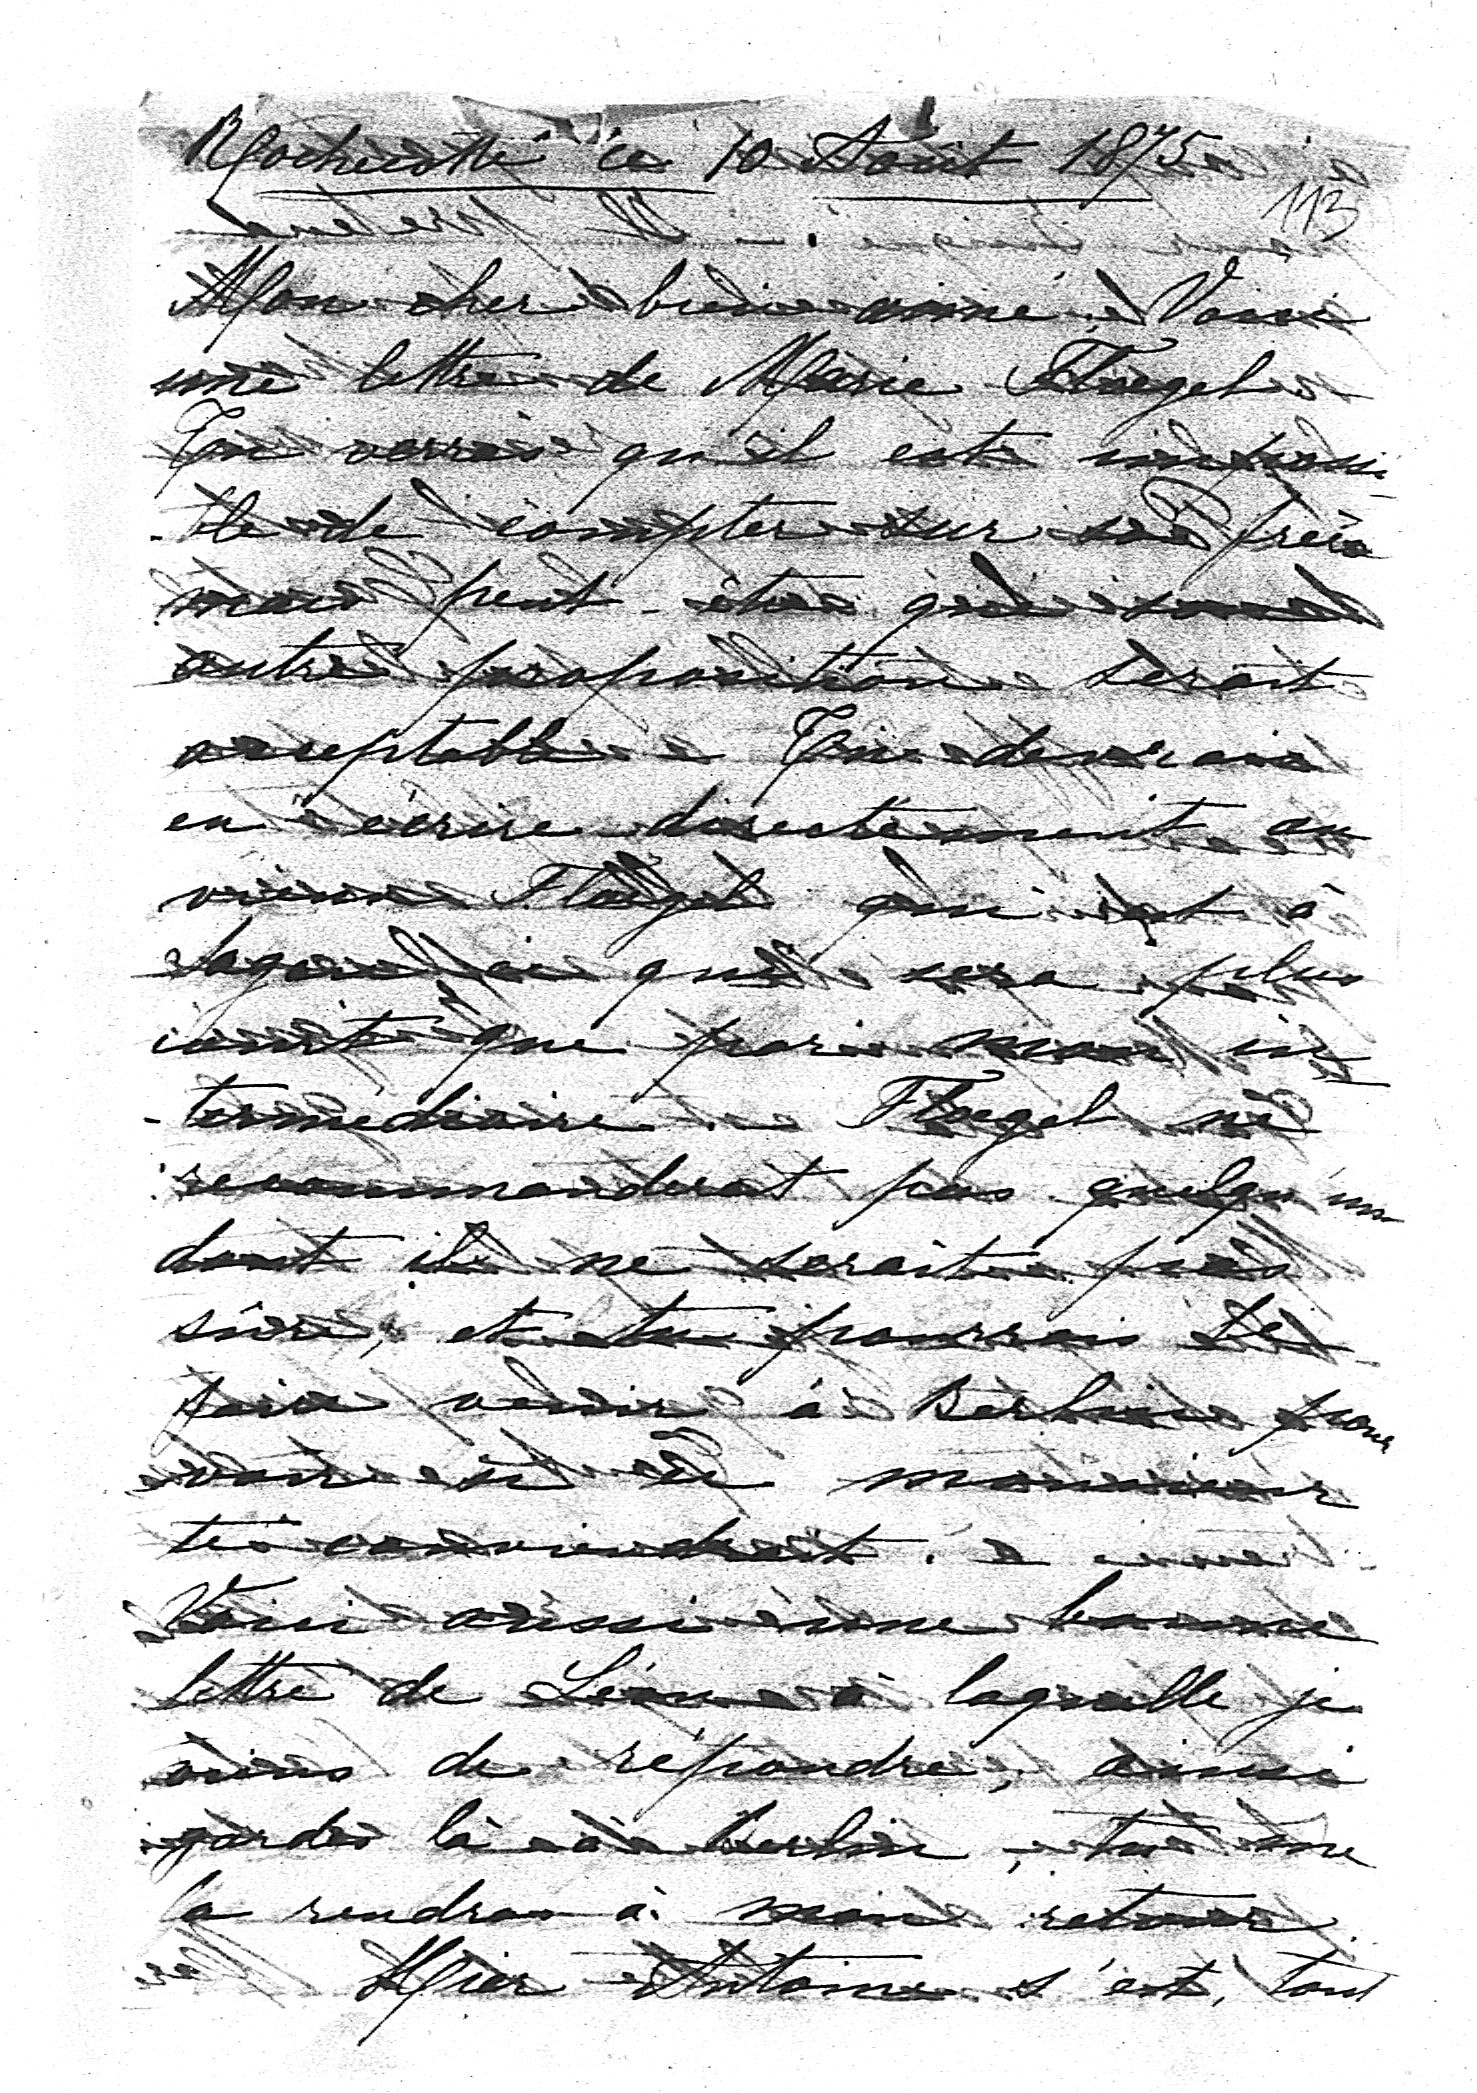 Rochecotte ce 10 Août 1875
113
Mon cher bien aimé. Voici
une lettre de Marie Floegel
Tu verras qu'il est impossi
-ble de compter sur son frère
mais peut-être que son
autre proposition serait
acceptable. Tu devrais
en écrire directement au
vieux Floegel qui est à
Sagan ce qui sera plus
court que par mon in
-termédiaire. Floegel ne
recommanderait pas quelqu'un
dont il ne serait pas
sûre, et tu pourrais le
faire venir à Berlin pour
voir si le monsieur
te conviendrait.
Voici aussi une bonne
lettre de Léon à laquelle je
viens de répondre, ainsi
gardes la à Berlin, tu me
la rendras à mon retour
Hier Antoine s'est, tout